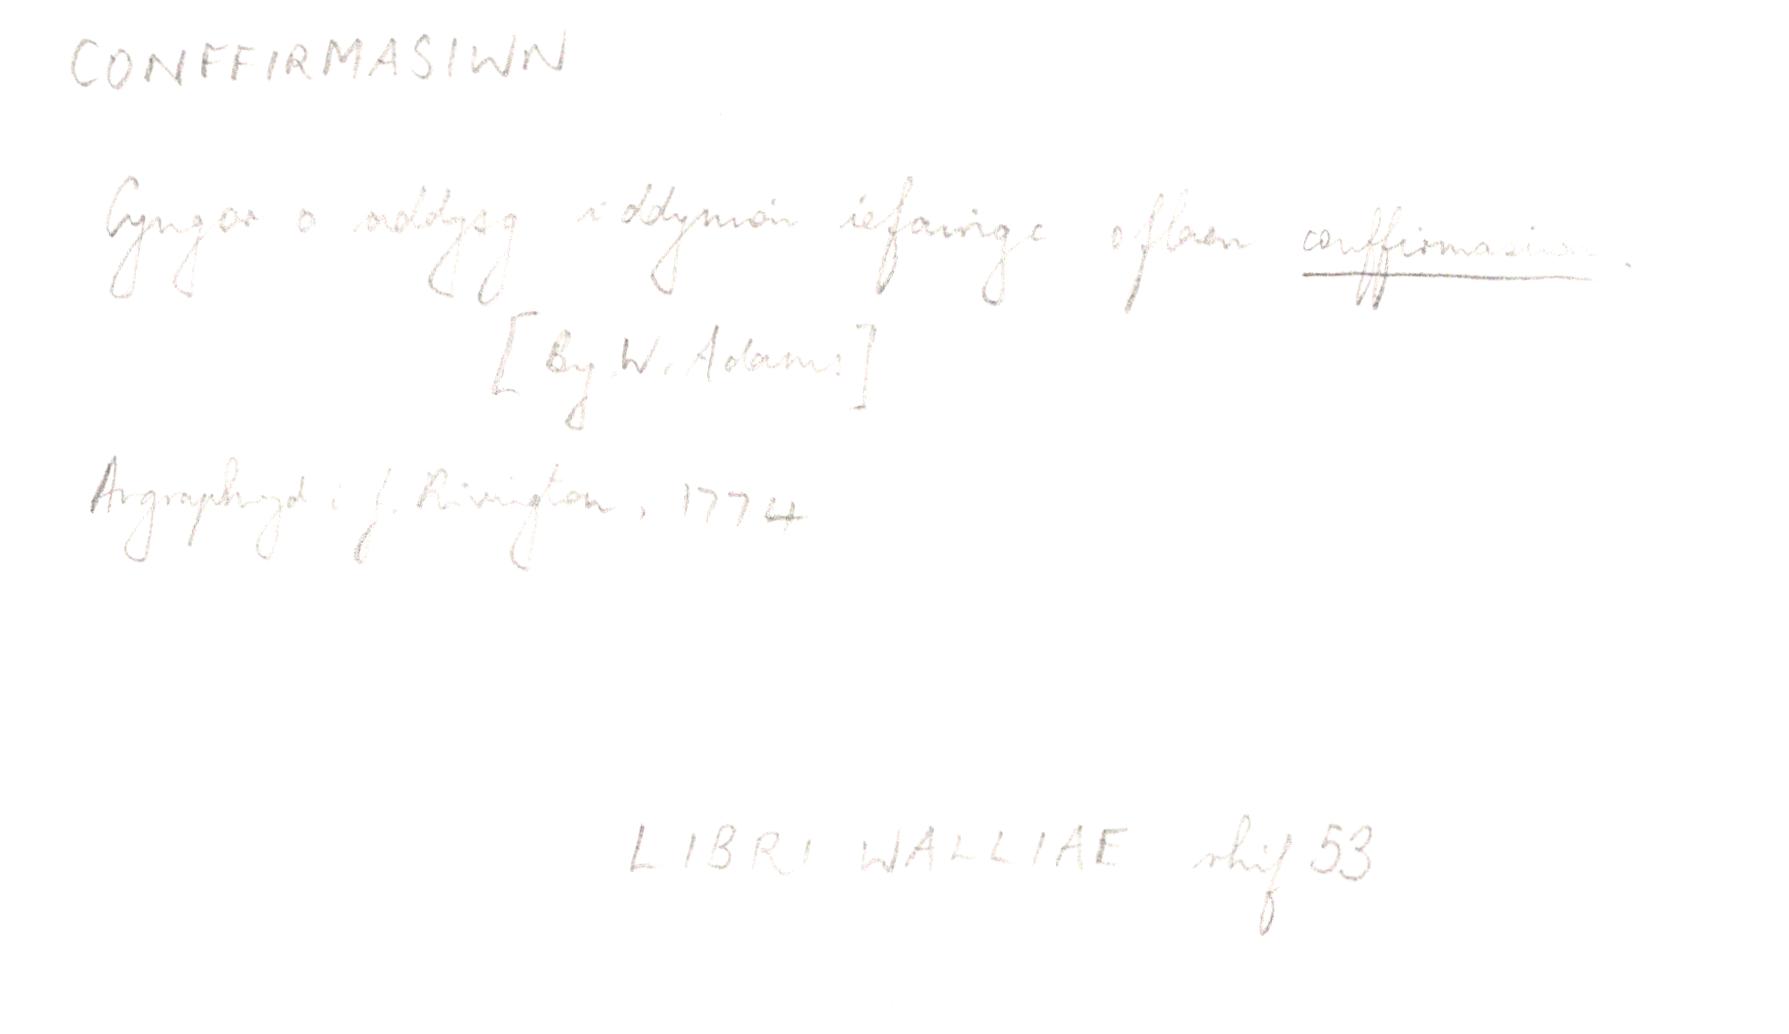 CONFFIRMASIWN
Cyngor o addysg i ddynion iefaingc o flaen conffirmasiwn.
[By W. Adams]
Argraphwyd i J. Rivington, 1774
LIBRI WALLIAE rhif 53